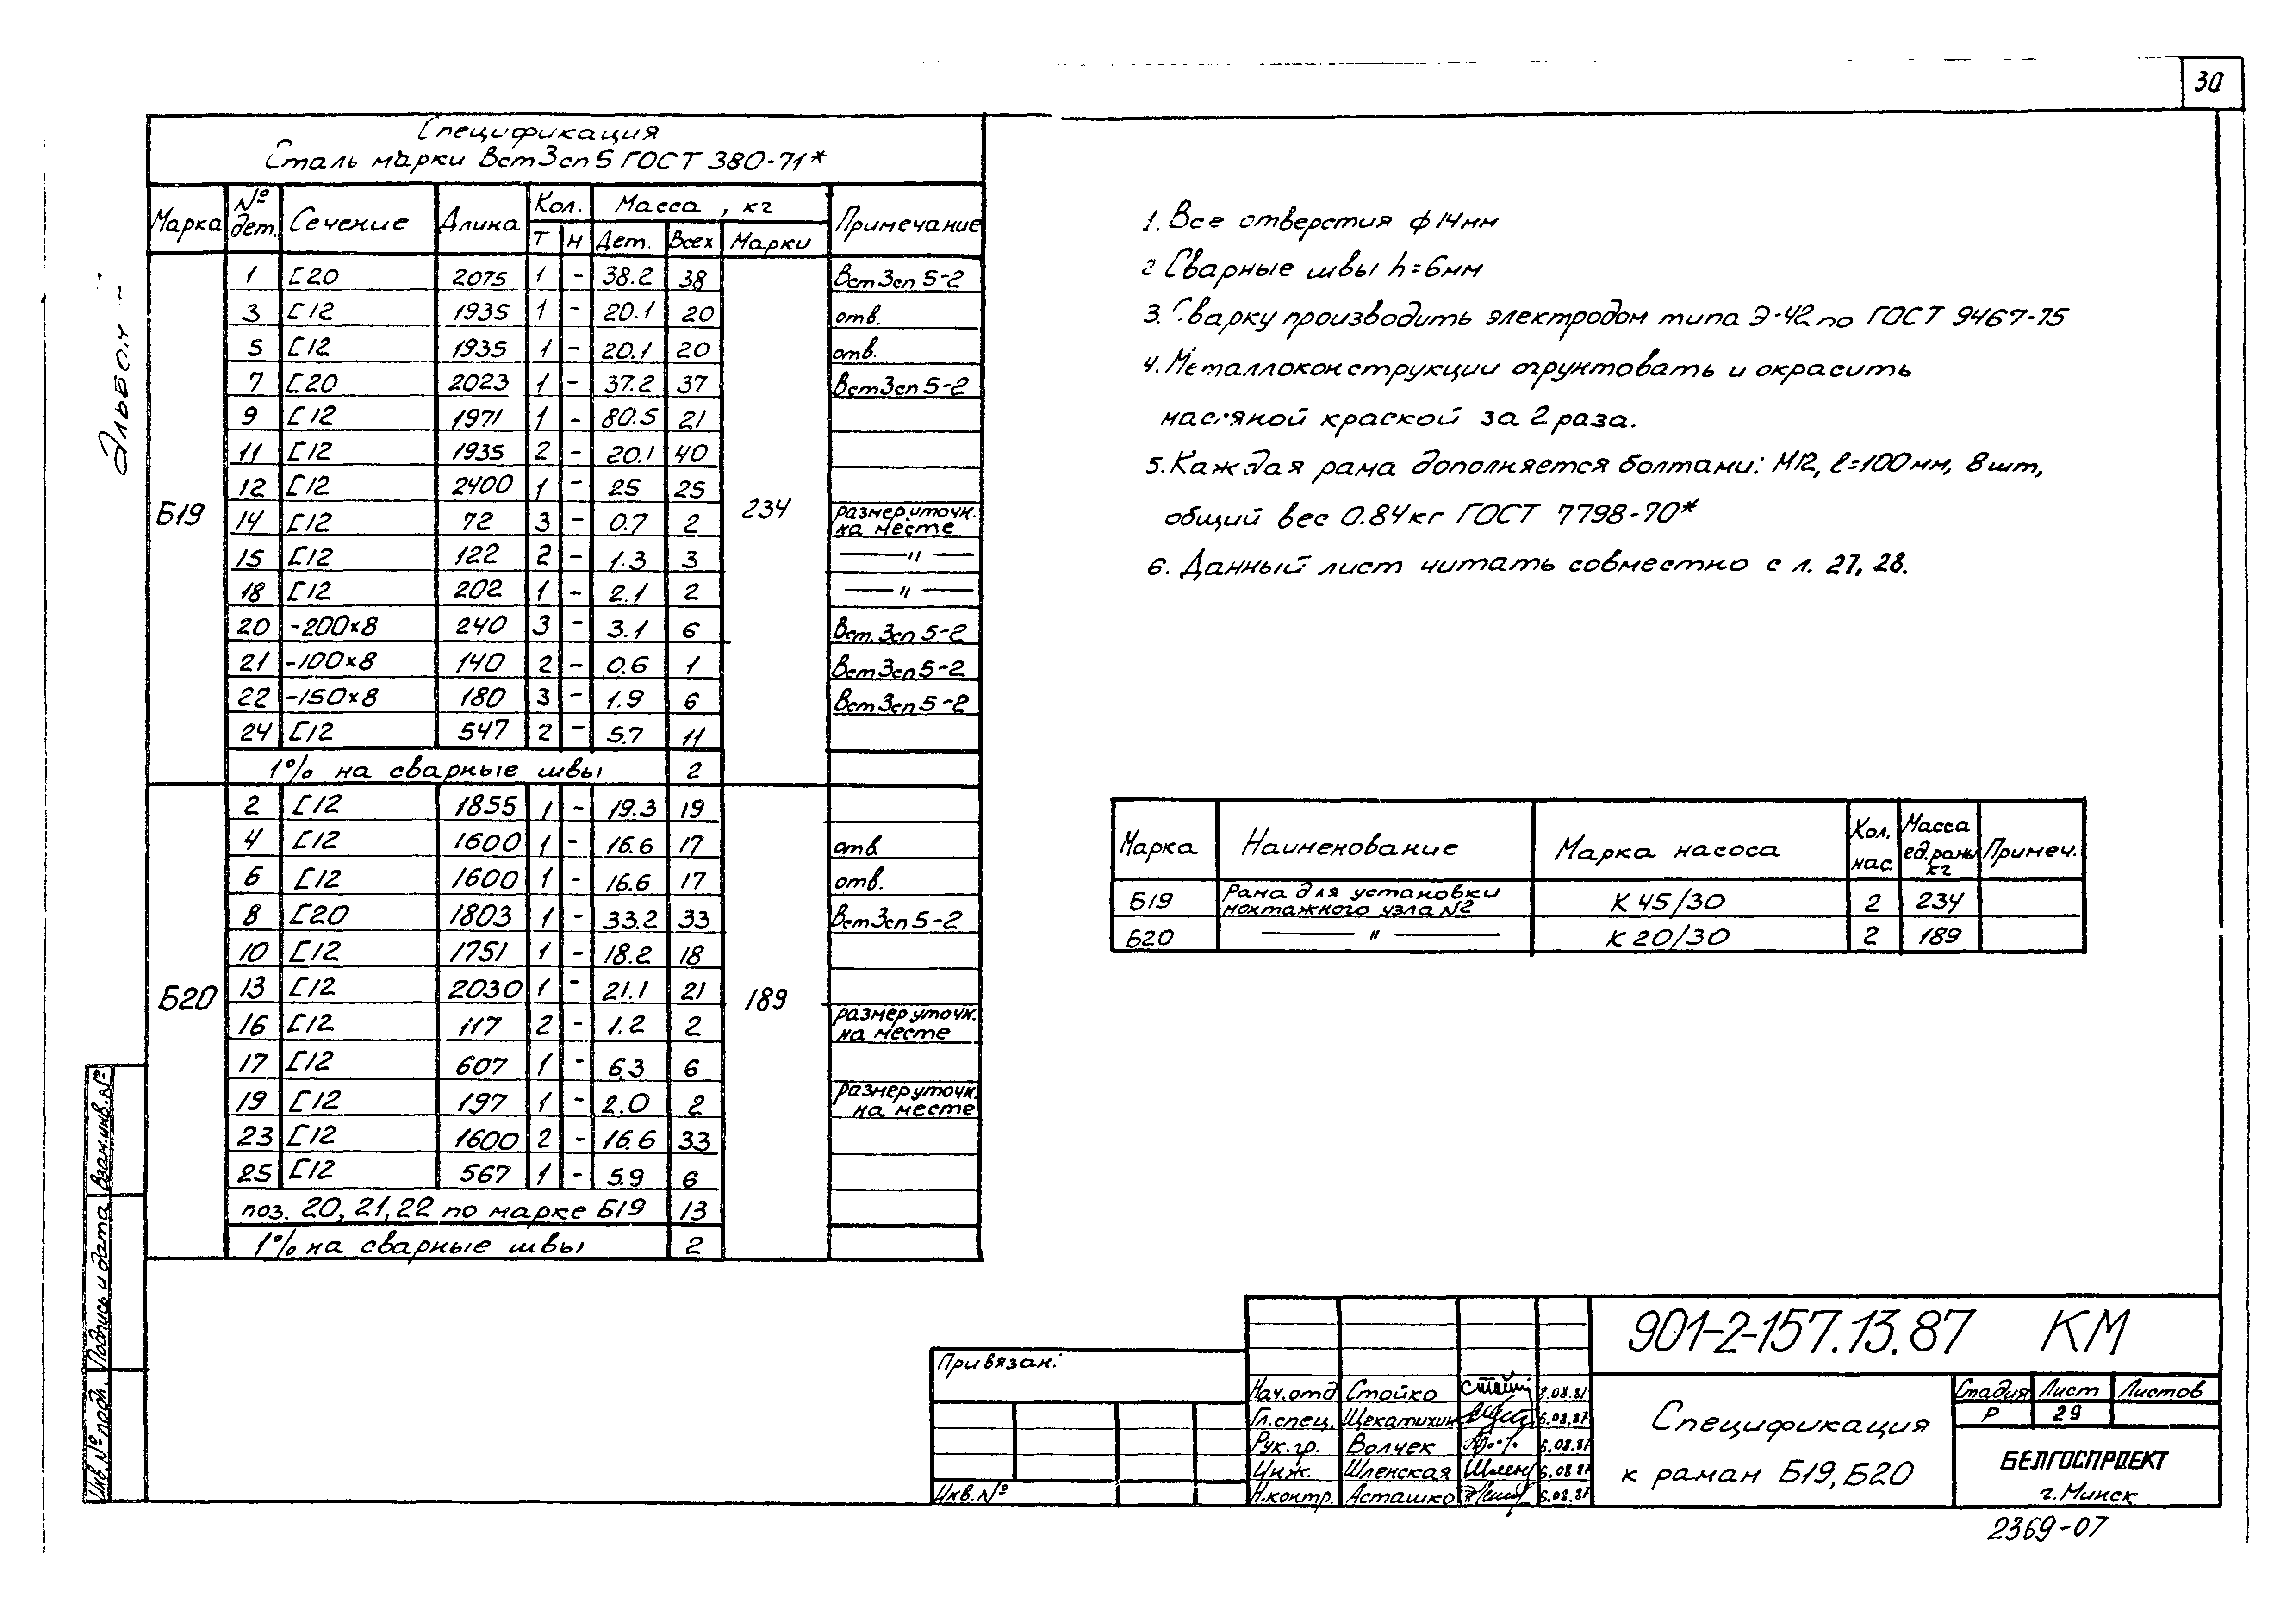 30
Альбом
Спецификация
Сталь марки Вст3сп5 ГОСТ 380-71*
Марка № дет. Сечение Длина Кол. Масса, кг Примечание
Т Н Дет. Всех Марки
Б19 234
1 [20 2075 1 - 38.2 38 Вст3сп5-2
3 [12 1935 1 - 20.1 20 отв.
5 [12 1935 1 - 20.1 20 отв.
7 [20 2023 1 - 37.2 37 Вст3сп5-2
9 [12 1971 1 - 80.5 21
11 [12 1935 2 - 20.1 40
12 [12 2400 1 - 25 25
14 [12 72 3 - 0.7 2 размер уточн. на месте
15 [12 122 2 - 1.3 3 — " —
18 [12 202 1 - 2.1 2 — " —
20 -200×8 240 3 - 3.1 6 Вст.3сп5-2
21 -100×8 140 2 - 0.6 1 Вст3сп5-2
22 -150×8 180 3 - 1.9 6 Вст3сп5-2
24 [12 547 2 - 5.7 11
1% на сварные швы 2
Б20 189
2 [12 1855 1 - 19.3 19
4 [12 1600 1 - 16.6 17 отв
6 [12 1600 1 - 16.6 17 отв.
8 [20 1803 1 - 33.2 33 Вст3сп5-2
10 [12 1751 1 - 18.2 18
13 [12 2030 1 - 21.1 21
16 [12 117 2 - 1.2 2 размер уточн. на месте
17 [12 607 1 - 6.3 6
19 [12 197 1 - 2.0 2 размер уточн. на месте
23 [12 1600 2 - 16.6 33
25 [12 567 1 - 5.9 6
поз. 20, 21, 22 по марке Б19 13
1% на сварные швы 2
1. Все отверстия ф14мм
2 Сварные швы h=6мм
3. Сварку производить электродом типа Э-42 по ГОСТ 9467-75
4. Металлоконструкции огрунтовать и окрасить
масляной краской за 2 раза.
5. Каждая рама дополняется болтами: М12, ℓ=100мм, 8шт,
общий вес 0.84кг ГОСТ 7798-70*
6. Данный лист читать совместно с л. 27, 28.
Марка Наименование Марка насоса Кол. нас. Масса ед.рамы кг Примеч.
Б19 Рама для установки монтажного узла №2 К 45/30 2 234
Б20 — " — К 20/30 2 189
Взам.инв.№
Подпись и дата
Инв.№ подл.
Привязан:
Инв.№
901-2-157.13.87 КМ
Нач.отд Стойко
Гл.спец. Щекатихин 6.08.87
Рук.гр. Волчек 6.08.87
Инж. Шленская Шлен 6.08.87
Н.контр. Асташко 6.08.87
Спецификация
к рамам Б19, Б20
Стадия Лист Листов
Р 29
БЕЛГОСПРОЕКТ
г.Минск
2369-07